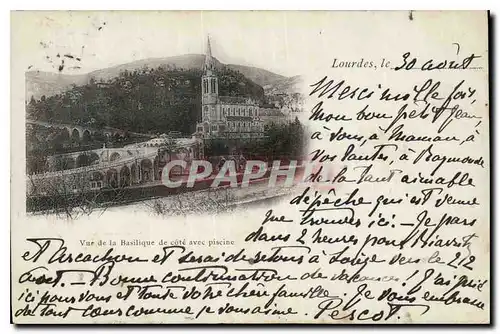 Lourdes, le 30 août
Merci mille fois,
mon bon petit Jean,
à vous, à Maman, à
vos tantes, à Raymonde
de la tant aimable
dépêche qui est venue
me trouver ici. - Je pars
dans 2 heures pour Biarritz
et Arcachon et serai de retour à vers le 2/12
août. - Bonne continuation de vacances! J'ai prié
ici pour vous et toute votre chère famille. Je vous embrasse
de tout cœur comme je vous aime. Pescot
Vue de la Basilique de côté avec piscine
CPARAMA.COM